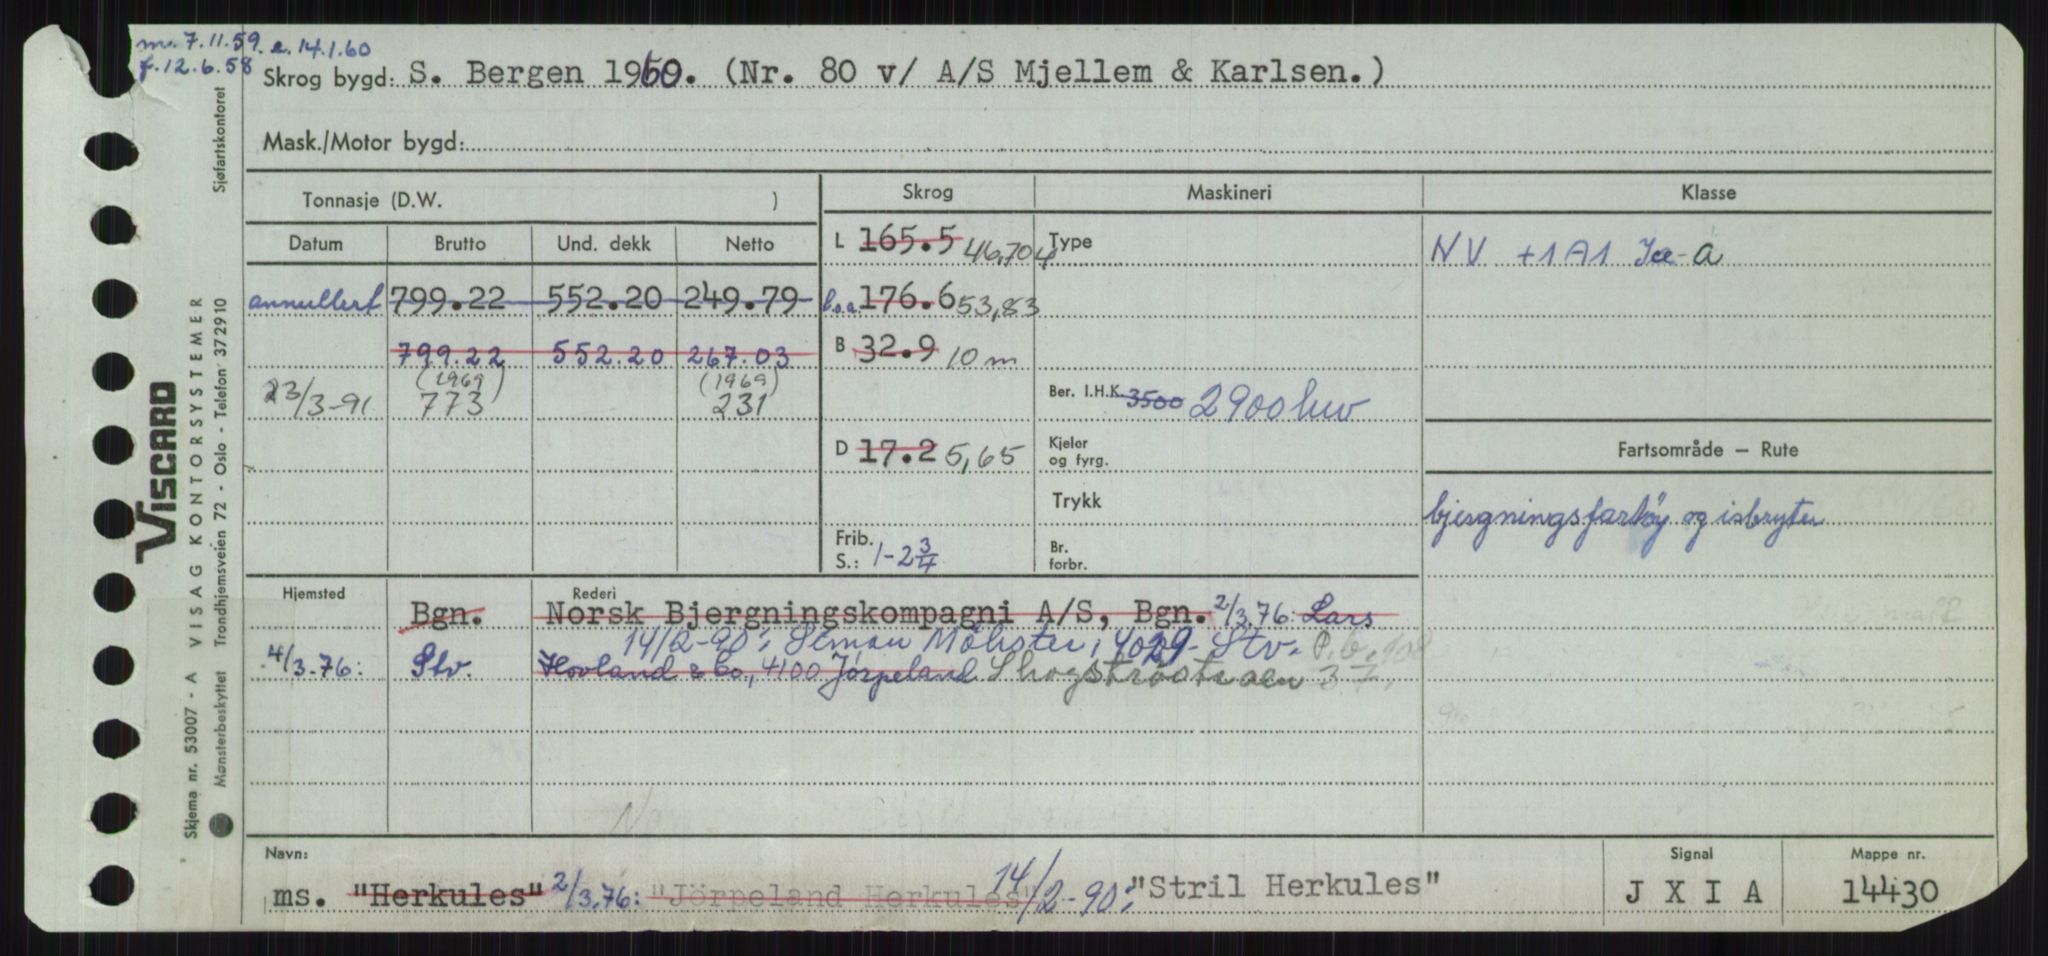 m. 7.11.59. e. 14.1.60
f. 12.6.58
Skrog bygd: S. Bergen 1960. (Nr. 80 v/ A/S Mjellem & Karlsen.)
Mask./Motor bygd:
Tonnasje (D.W. )
Skrog
Maskineri
Klasse
Datum Brutto Und. dekk Netto
L 165.5 46,704
Type
NV +1A1 Ice-a
annullert 799.22 552.20 249.79
l.o.a. 176.6 53,83
799.22 552.20 267.03
B 32.9 10 m
(1969) (1969)
23/3-91 773 231
Ber. I.H.K. 3500 2900 hw
D 17.2 5,65
Kjeler og fyrg.
Fartsområde — Rute
Trykk
bjergningsfartøy og isbryter
Frib. S.: 1-2 3/4
Br. forbr.
Hjemsted
Rederi
Bgn. Norsk Bjergningskompagni A/S, Bgn. 2/3.76: Lars
14/2-90: Simon Møkster, 4029 Stv. P.b. 108
4/3.76: Stv. Hovland & Co., 4100 Jørpeland Skogstøstraen 37.
Navn:
ms. "Herkules" 2/3.76: "Jörpeland Herkules" 14/2-90: "Stril Herkules"
Signal
J X I A
Mappe nr.
14430
VISCARD
VISAG KONTORSYSTEMER
Trondhjemsveien 72 - Oslo - Telefon 372910
Sjøfartskontoret
Skjema nr. 53007 - A
Mønsterbeskyttet